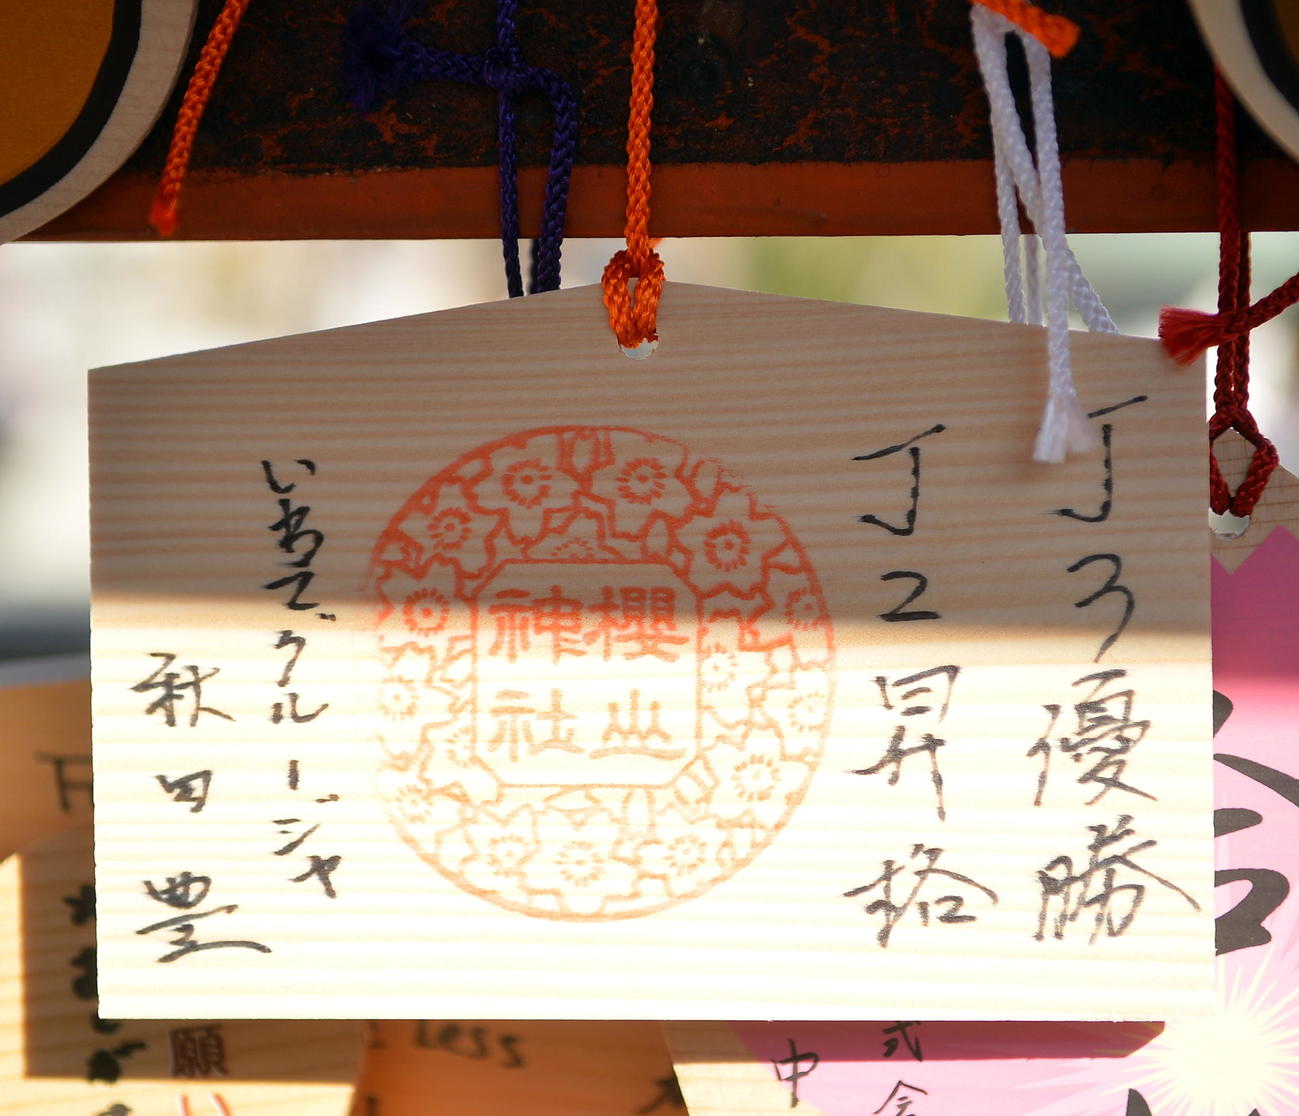 J3優勝
J2昇格
櫻山
神社
いわてグルージャ
秋田豊
合
願
less
式会
中